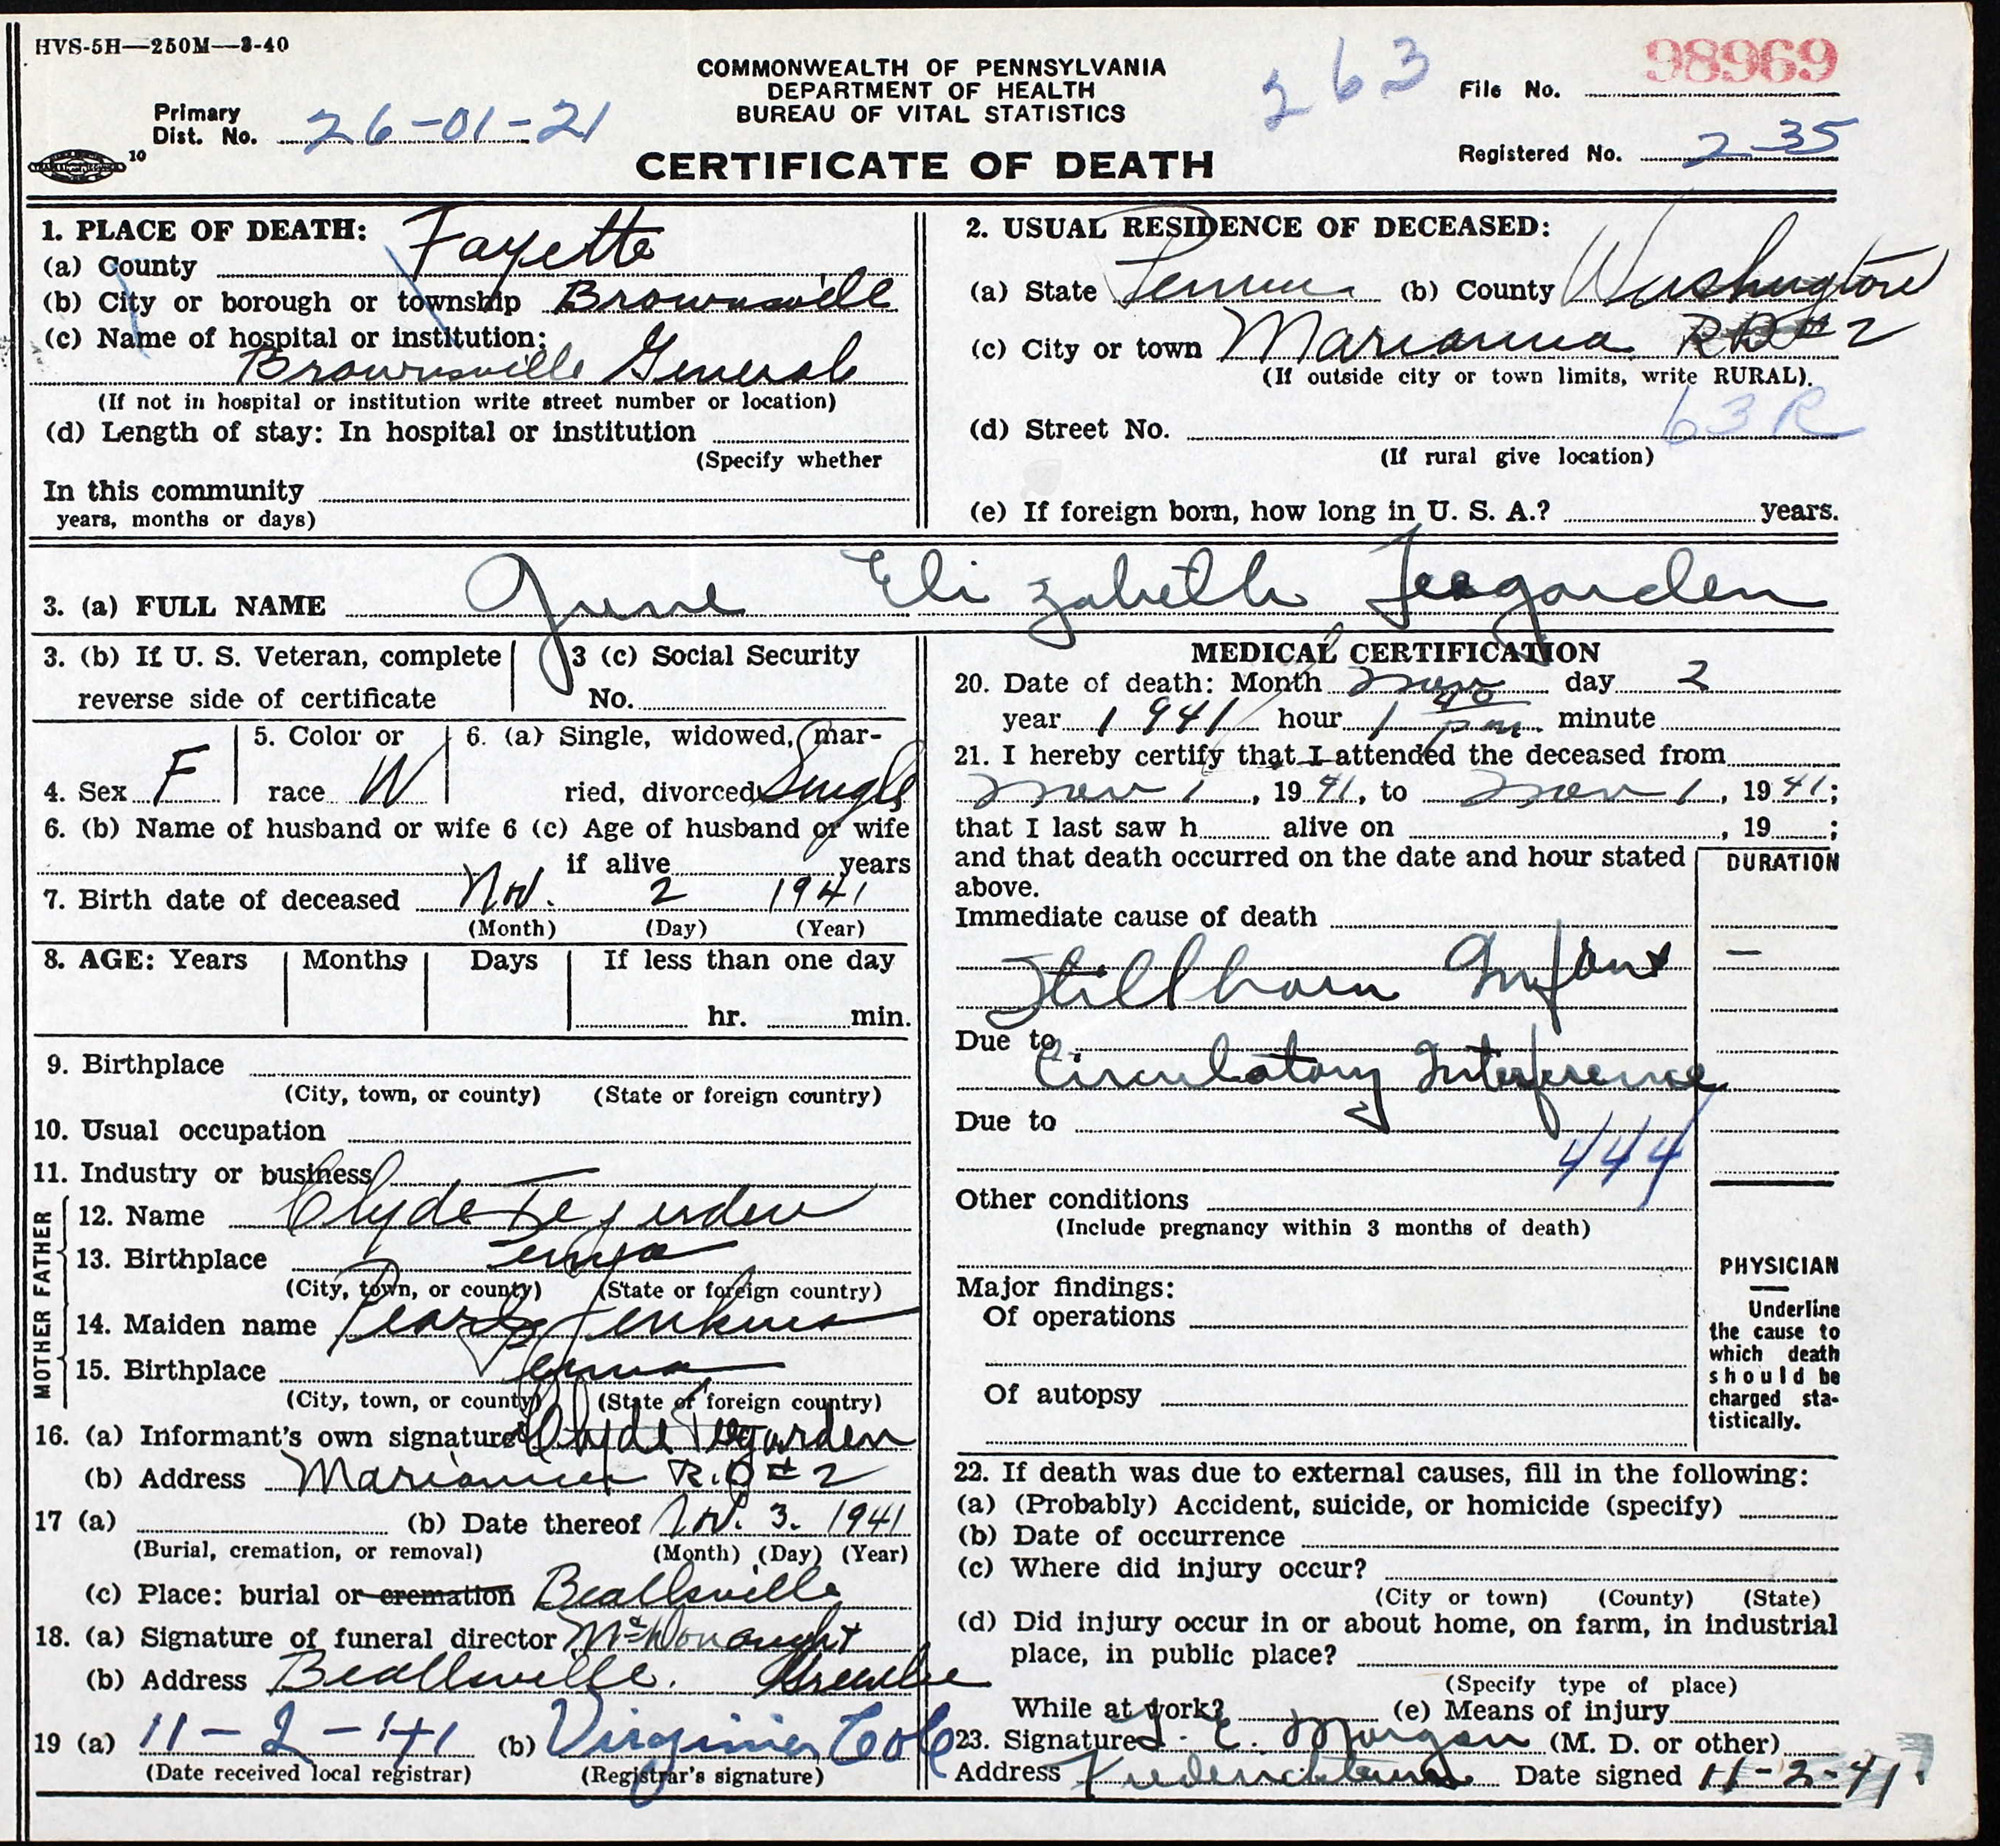 HVS-5H—250M—3-40
COMMONWEALTH OF PENNSYLVANIA
DEPARTMENT OF HEALTH
BUREAU OF VITAL STATISTICS
263
File No. 98969
Primary Dist. No. 26-01-21
Registered No. 235
10
CERTIFICATE OF DEATH
1. PLACE OF DEATH:
(a) County Fayette
(b) City or borough or township Brownsville
(c) Name of hospital or institution:
Brownsville General
(If not in hospital or institution write street number or location)
(d) Length of stay: In hospital or institution
(Specify whether
In this community
years, months or days)
2. USUAL RESIDENCE OF DECEASED:
(a) State Penna (b) County Washington
(c) City or town Marianna RD #2
(If outside city or town limits, write RURAL).
63R
(d) Street No.
(If rural give location)
(e) If foreign born, how long in U. S. A.? years.
3. (a) FULL NAME June Elizabeth Teegarden
3. (b) If U. S. Veteran, complete
reverse side of certificate
3 (c) Social Security
No.
4. Sex F
5. Color or
race W
6. (a) Single, widowed, mar-
ried, divorced Single
6. (b) Name of husband or wife 6 (c) Age of husband or wife
if alive years
7. Birth date of deceased Nov. 2 1941
(Month) (Day) (Year)
8. AGE: Years Months Days If less than one day
hr. min.
9. Birthplace
(City, town, or county) (State or foreign country)
10. Usual occupation
11. Industry or business
FATHER
12. Name Clyde Tegarden
13. Birthplace Penna
(City, town, or county) (State or foreign country)
MOTHER
14. Maiden name Pearl Jenkins
15. Birthplace Penna
(City, town, or county) (State or foreign country)
16. (a) Informant's own signature Clyde Tegarden
(b) Address Marianna R.D #2
17 (a) (b) Date thereof Nov. 3. 1941
(Burial, cremation, or removal) (Month) (Day) (Year)
(c) Place: burial or cremation Beallsville
18. (a) Signature of funeral director
(b) Address Beallsville.
19 (a) 11-2-41 (b) Virginia Cole
(Date received local registrar) (Registrar's signature)
MEDICAL CERTIFICATION
20. Date of death: Month Nov day 2
year 1941 hour 1 40 pm minute
21. I hereby certify that I attended the deceased from
Nov 1, 19 41, to Nov 1, 19 41;
that I last saw h alive on , 19 ;
and that death occurred on the date and hour stated
above.
DURATION
Immediate cause of death
Stillborn Infant —
Due to
Circulatory Interference
Due to
444
Other conditions
(Include pregnancy within 3 months of death)
Major findings:
Of operations
Of autopsy
PHYSICIAN
Underline
the cause to
which death
should be
charged sta-
tistically.
22. If death was due to external causes, fill in the following:
(a) (Probably) Accident, suicide, or homicide (specify)
(b) Date of occurrence
(c) Where did injury occur?
(City or town) (County) (State)
(d) Did injury occur in or about home, on farm, in industrial
place, in public place?
(Specify type of place)
While at work? (e) Means of injury
23. Signature E. Morgan (M. D. or other)
Address Fredericktown Date signed 11-2-41